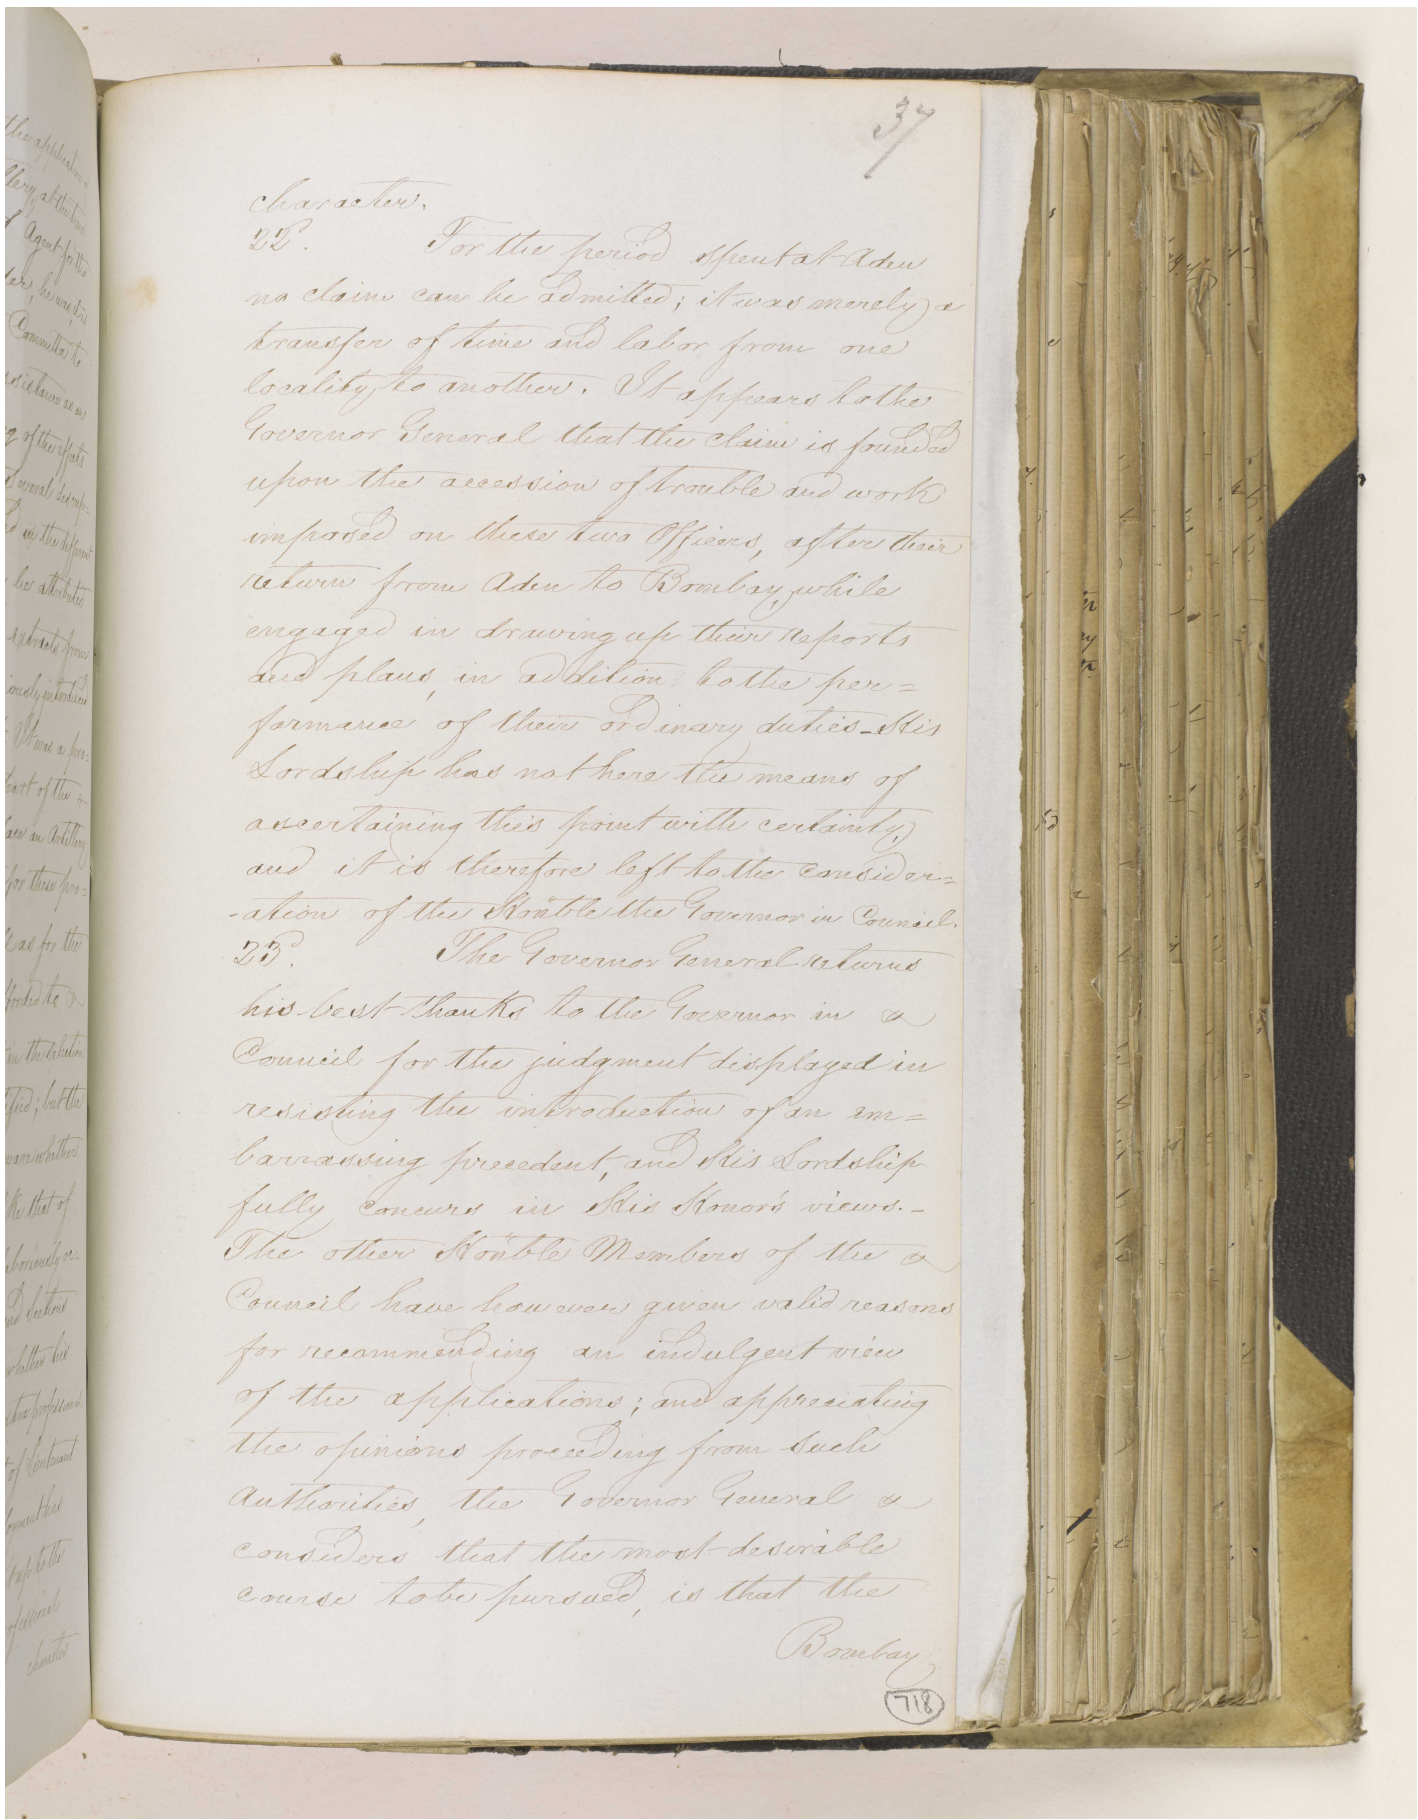 37
character.
22. For the period spent at Aden
no claim can be admitted; it was merely a
transfer of time and labor from one
locality to another. It appears to the
Governor General that the claim is founded
upon the accession of trouble and work
imposed on these two Officers, after their
return from Aden to Bombay, while
engaged in drawing up their reports
and plans, in addition to the per=
formance of their ordinary duties - His
Lordship has not here the means of
ascertaining this point with certainty,
and it is therefore left to the consider=
-ation of the Hon'ble the Governor in Council.
23. The Governor General returns
his best thanks to the Governor in
Council for the judgment displayed in
resisting the introduction of an em=
barrassing precedent, and His Lordship
fully concurs in His Honor's views. -
The other Hon'ble Members of the
Council have however given valid reasons
for recommending an indulgent view
of the applications; and appreciating
the opinions proceeding from such
Authorities, the Governor General
considers that the most desirable
course to be pursued, is that the
Bombay
718